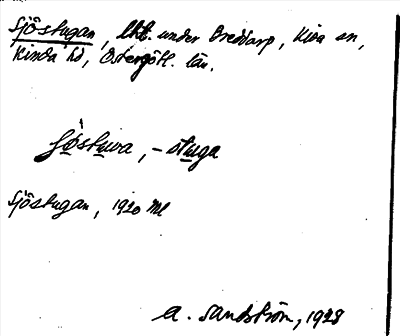 Sjöstugan, lht. under Breddarp, Kisa sn,
Kinda hd, Östergötl. län.
Sjöstuva, -stuga
Sjöstugan, 1920 ml
A. Sandström, 1928